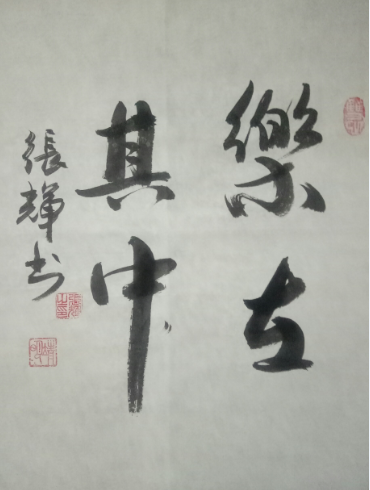 樂在
其中
張輝书